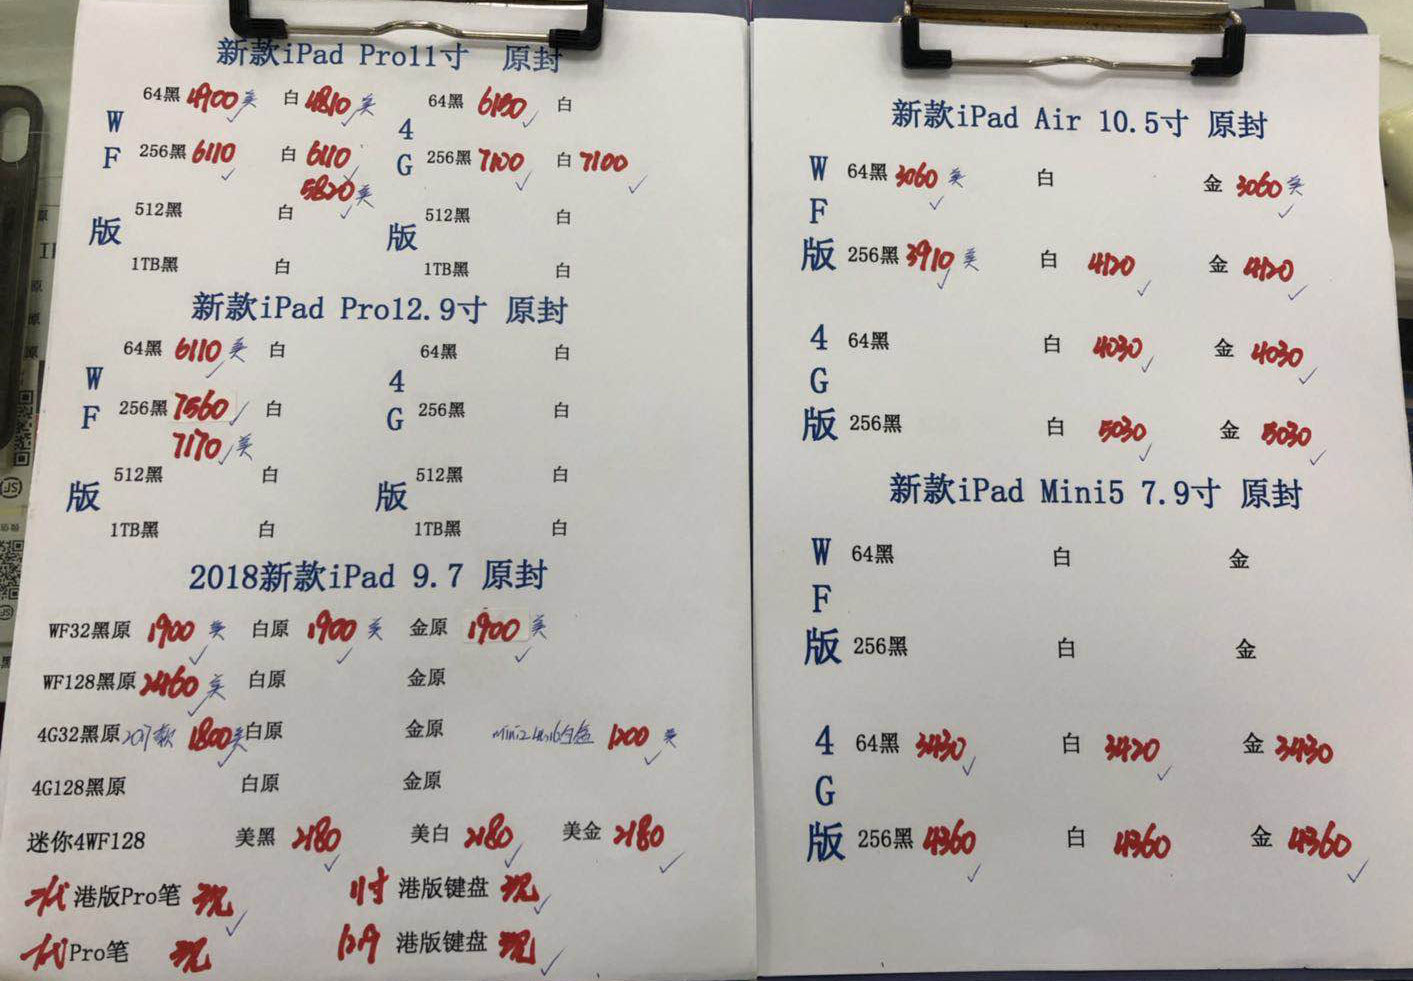 新款iPad Pro11寸 原封
WF版
64黑 4900美 白 4810美
256黑 6110 白 6110
5820美
512黑 白
1TB黑 白
4G版
64黑 6180 白
256黑 7100 白 7100
512黑 白
1TB黑 白
新款iPad Pro12.9寸 原封
WF版
64黑 6110美 白
256黑 7560 白
7170美
512黑 白
1TB黑 白
4G版
64黑 白
256黑 白
512黑 白
1TB黑 白
2018新款iPad 9.7 原封
WF32黑原 1900美 白原 1900美 金原 1900美
WF128黑原 2460美 白原 金原
4G32黑原 2017款 1800美 白原 金原 mini2 1200美
4G128黑原 白原 金原
迷你4WF128 美黑 2180 美白 2180 美金 2180
港版Pro笔 现 11寸 港版键盘 现
代Pro笔 现 12.9 港版键盘 现
新款iPad Air 10.5寸 原封
WF版
64黑 3060美 白 金 3060美
256黑 3910美 白 4120 金 4120
4G版
64黑 白 4030 金 4030
256黑 白 5030 金 5030
新款iPad Mini5 7.9寸 原封
WF版
64黑 白 金
256黑 白 金
4G版
64黑 3430 白 3420 金 3430
256黑 4360 白 4360 金 4360